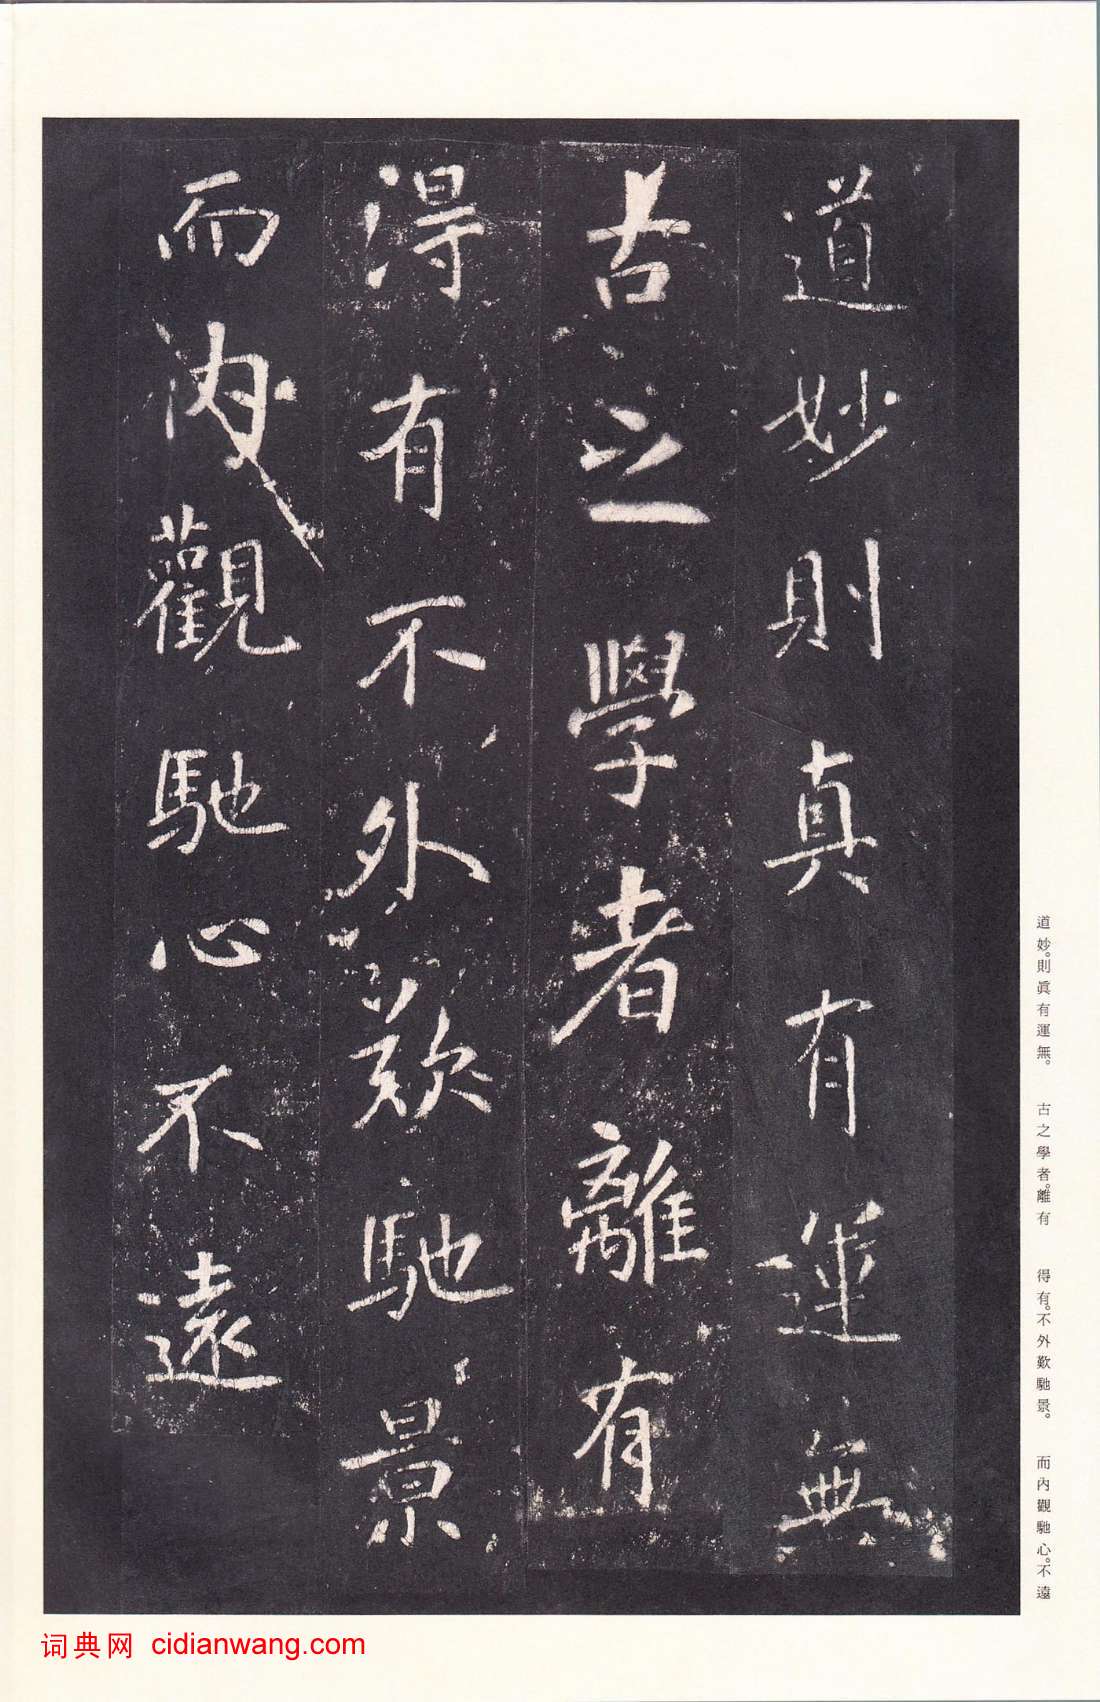 道妙則真有運無
古之學者離有
得有不外歎馳景
而內觀馳心不遠
道妙。則眞有運無。 古之學者。離有 得有。不外歎馳景。 而內觀馳心。不遠
词典网 cidianwang.com